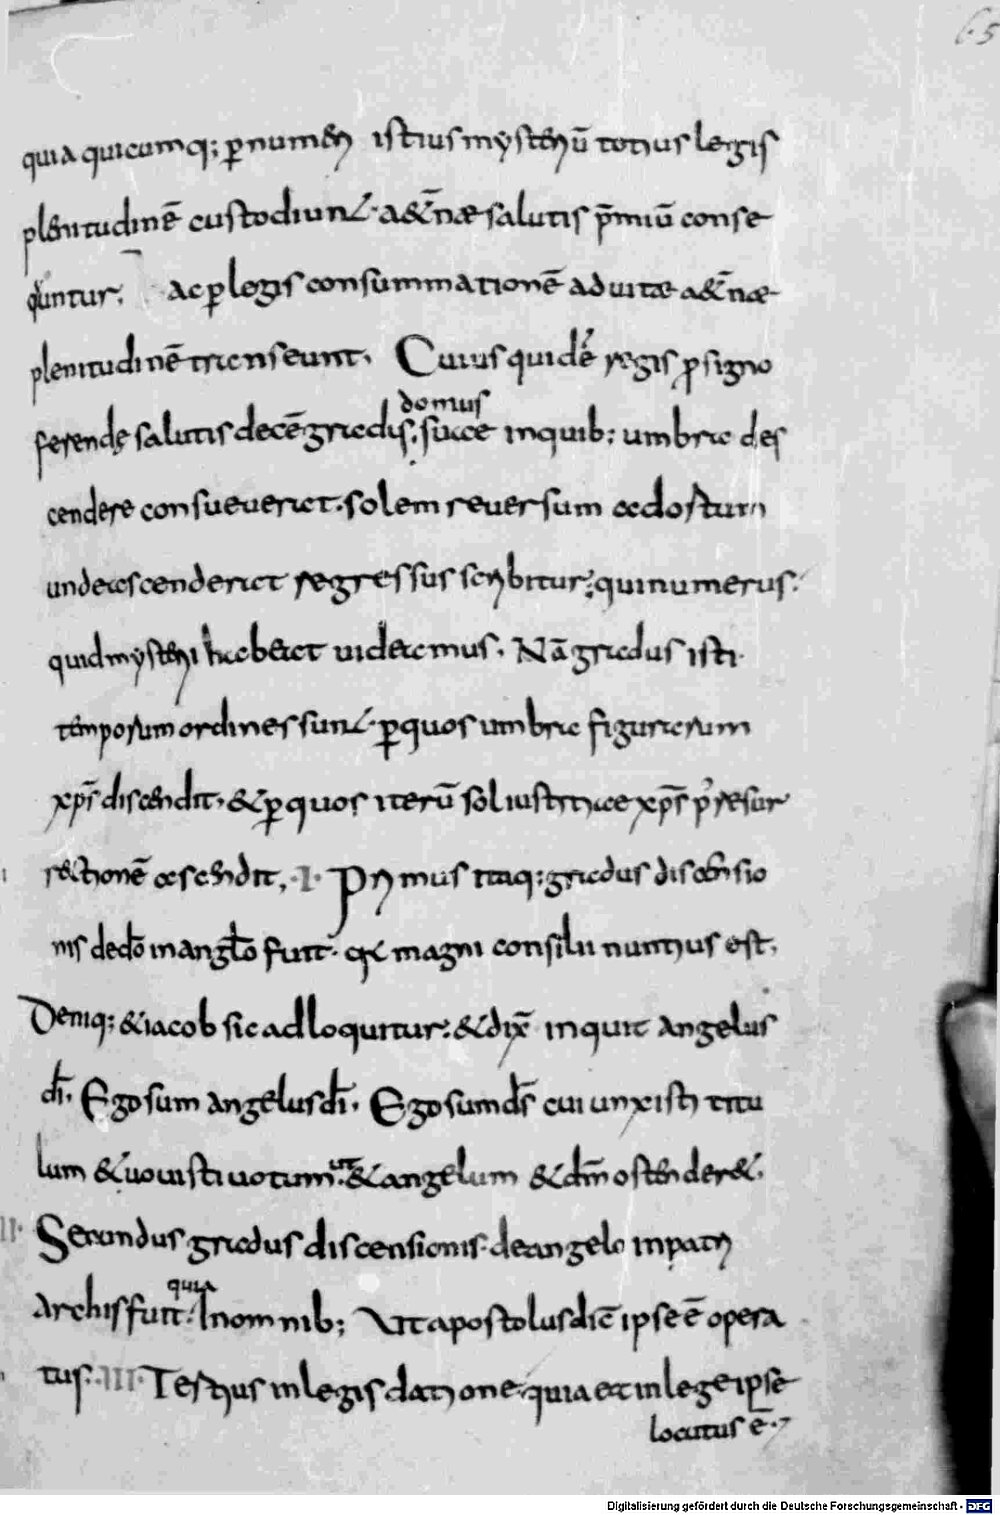 65
quia quicumq; ꝑ numeꝝ istius mysteriū totius legis
plenitudinē custodiunt · aet̄nae salutis p̄miū conse
quntur; ac ꝑ legis consummationē ad uitae aet̄nae
plenitudinē transeunt, Cuius quidē regis ꝓ signo
domus
ferende salutis decē gradis, suae inquib; umbra des
cendere consueuerat · solem reuersum ac dorsum
unde ascenderat regressus scribitur; qui numerus
quid mysterii habeat uideamus, Nā gradus isti
temporum ordines sunt · ꝑ quos umbra figurarum
xp̄s discendit, & ꝑ quos iterū sol iustitiae xp̄s p resur
rectionē ascendit, · I · Primus itaq; gradus discensio
nis de dō in anglō fuit · q magni consilii nuntius est,
Deniq; & iacob sic adloquitur; & dix̄ inquit angelus
dī, Ego sum angelus dī, Ego sum ds̄ cui unxisti titu
lum & uouisti uotum · ut & angelum & dm̄ ostenderet,
II · Secundus gradus discensionis · de angelo in patri
quia
archis fuit · In omnib; Ut apostolus dic̄ ipse ē opera
tus · III · Tertius in legis datione, quia et in lege ipse
locutus ē ·
Digitalisierung gefördert durch die Deutsche Forschungsgemeinschaft - DFG